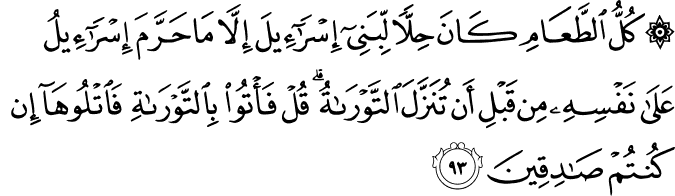 ۞ كُلُّ ٱلطَّعَامِ كَانَ حِلًّا لِّبَنِىٓ إِسْرَٰٓءِيلَ إِلَّا مَا حَرَّمَ إِسْرَٰٓءِيلُ
عَلَىٰ نَفْسِهِۦ مِن قَبْلِ أَن تُنَزَّلَ ٱلتَّوْرَىٰةُ ۗ قُلْ فَأْتُوا۟ بِٱلتَّوْرَىٰةِ فَٱتْلُوهَآ إِن
كُنتُمْ صَٰدِقِينَ ٩٣